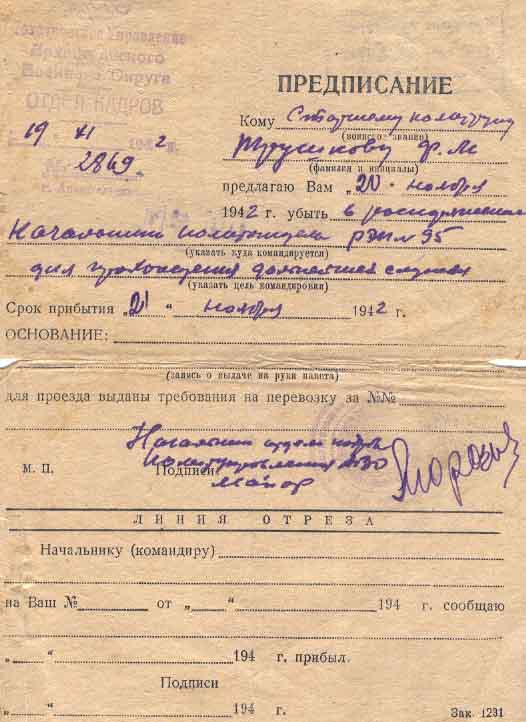 Политическое Управление
Архангельского
Военного Округа
ОТДЕЛ КАДРОВ
19 XI 1942 г.
2869
г. Архангельск
ПРЕДПИСАНИЕ
Кому Старшему политруку
(воинское звание)
Трушкову Ф. М
(фамилия и инициалы)
предлагаю Вам „20" ноября
1942 г. убыть в распоряжение
Начальника политотдела № 95
(указать куда командируется)
для прохождения дальнейшей службы
(указать цель командировки)
Срок прибытия „21" ноября 1942 г.
ОСНОВАНИЕ:
(запись о выдаче на руки пакета)
для проезда выданы требования на перевозку за №№
Начальник отдела кадров
Политуправления АВО
М. П. Подписи
Майор
ЛИНИЯ ОТРЕЗА
Начальнику (командиру)
на Ваш № от „ " 194 г. сообщаю
„ " 194 г. прибыл.
Подписи
„ " 194 г.
Зак. 1231